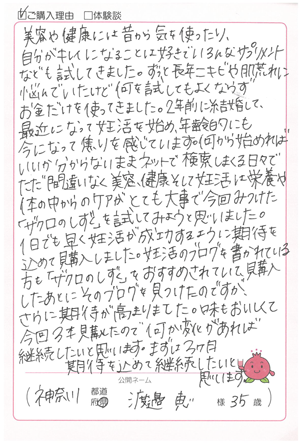 ☑ご購入理由 □体験談
美容や健康には昔から気を使ったり、
自分がキレイになることは好きでいろんなサプリメント
なども試してきました。ずっと長年ニキビや肌荒れに
悩んでいたけど何を試してもよくならず
お金だけを使ってきました。2年前に結婚して、
最近になって妊活を始め、年齢的にも
今になって焦りを感じています。何から始めれば
いいか分からないままネットで検索しまくる日々で
ただ間違いなく美容、健康そして妊活は栄養や
体の中からのケアがとても大事で今回みつけた
「ザクロのしずく」を試してみようと思いました。
1日でも早く妊活が成功するように期待を
込めて購入しました。妊活のブログを書かれている
方も「ザクロのしずく」をおすすめされていて、購入
したあとにそのブログを見つけたのですが、
さらに期待が高まりました。味もおいしくて
今回3本購入したので何か変化があれば
継続したいと思います。まずは3ヶ月
期待を込めて継続したいと
思います
公開ネーム
(神奈川 都道府県 渡邉 恵 様 35歳)